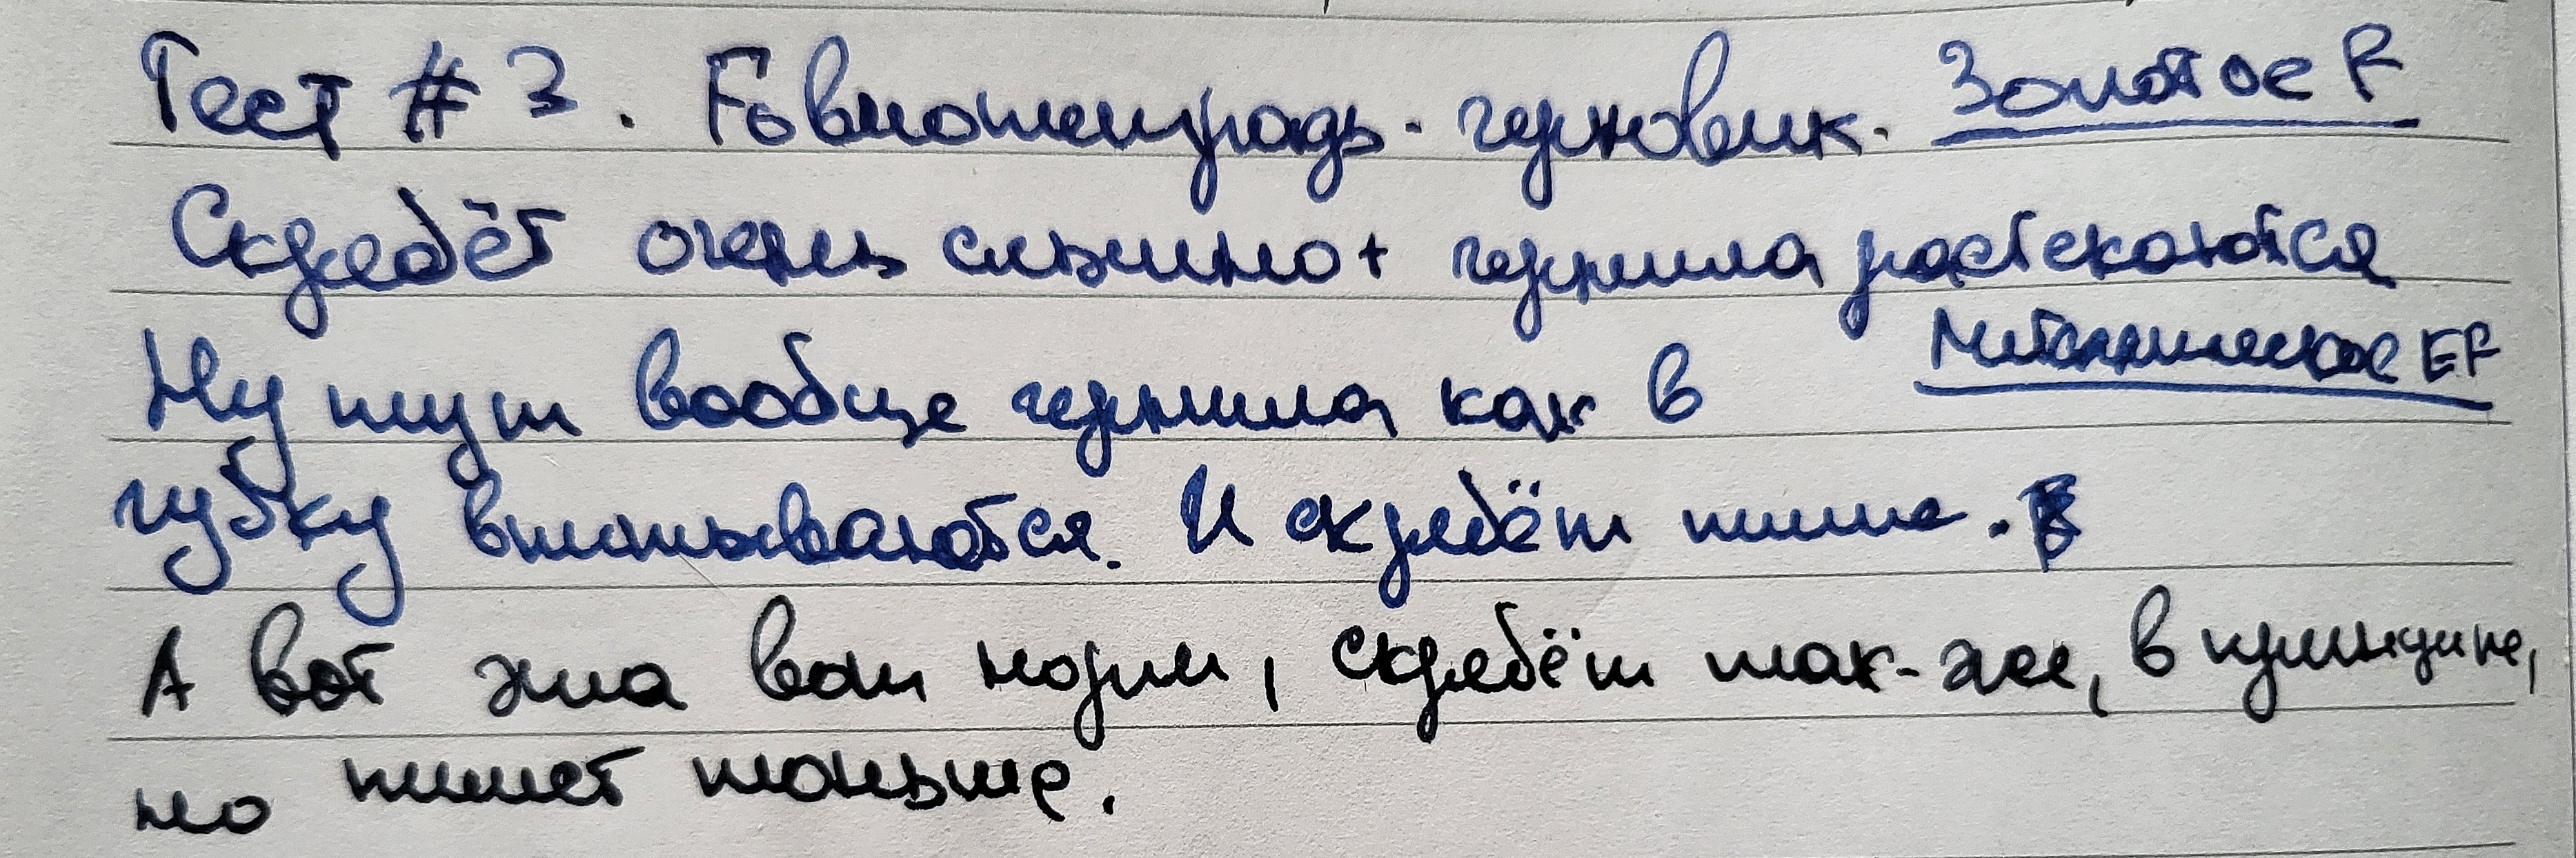 Тест # 3. Говнотетрадь - черновик. Золотое F
Скребёт очень сильно + чернила растекаются
Металлическое EF
Ну тут вообще чернила как в
губку впитываются. И скребёт тише.
А вот эта вот норм, скребёт так-же, в принципе,
но пишет тоньше.